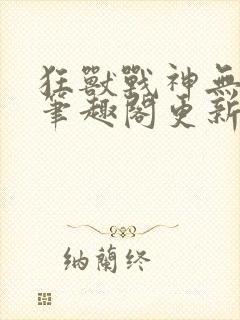 狂獸戰神無
筆趣閣更新
納蘭终